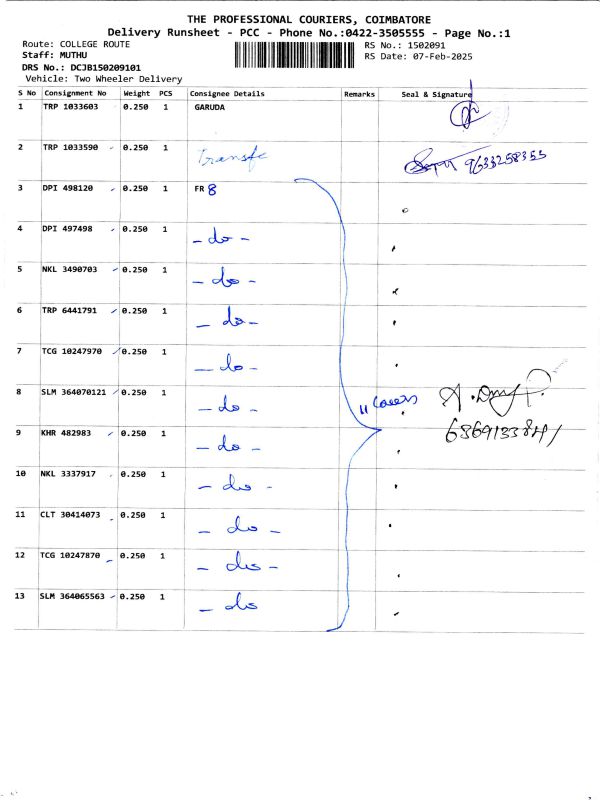 THE PROFESSIONAL COURIERS, COIMBATORE
Delivery Runsheet - PCC - Phone No.:0422-3505555 - Page No.:1
Route: COLLEGE ROUTE RS No.: 1502091
Staff: MUTHU RS Date: 07-Feb-2025
DRS No.: DCJB150209101
Vehicle: Two Wheeler Delivery
S No Consignment No Weight PCS Consignee Details Remarks Seal & Signature
1 TRP 1033603 0.250 1 GARUDA
2 TRP 1033590 0.250 1 Transfe 9633258355
3 DPI 498120 0.250 1 FR 8
4 DPI 497498 0.250 1 - do -
5 NKL 3490703 0.250 1 - do -
6 TRP 6441791 0.250 1 - do -
7 TCG 10247970 0.250 1 - do -
8 SLM 364070121 0.250 1 - do - 11 Covers
9 KHR 482983 0.250 1 - do -
10 NKL 3337917 0.250 1 - do -
11 CLT 30414073 0.250 1 - do -
12 TCG 10247870 0.250 1 - do -
13 SLM 364065563 0.250 1 - do